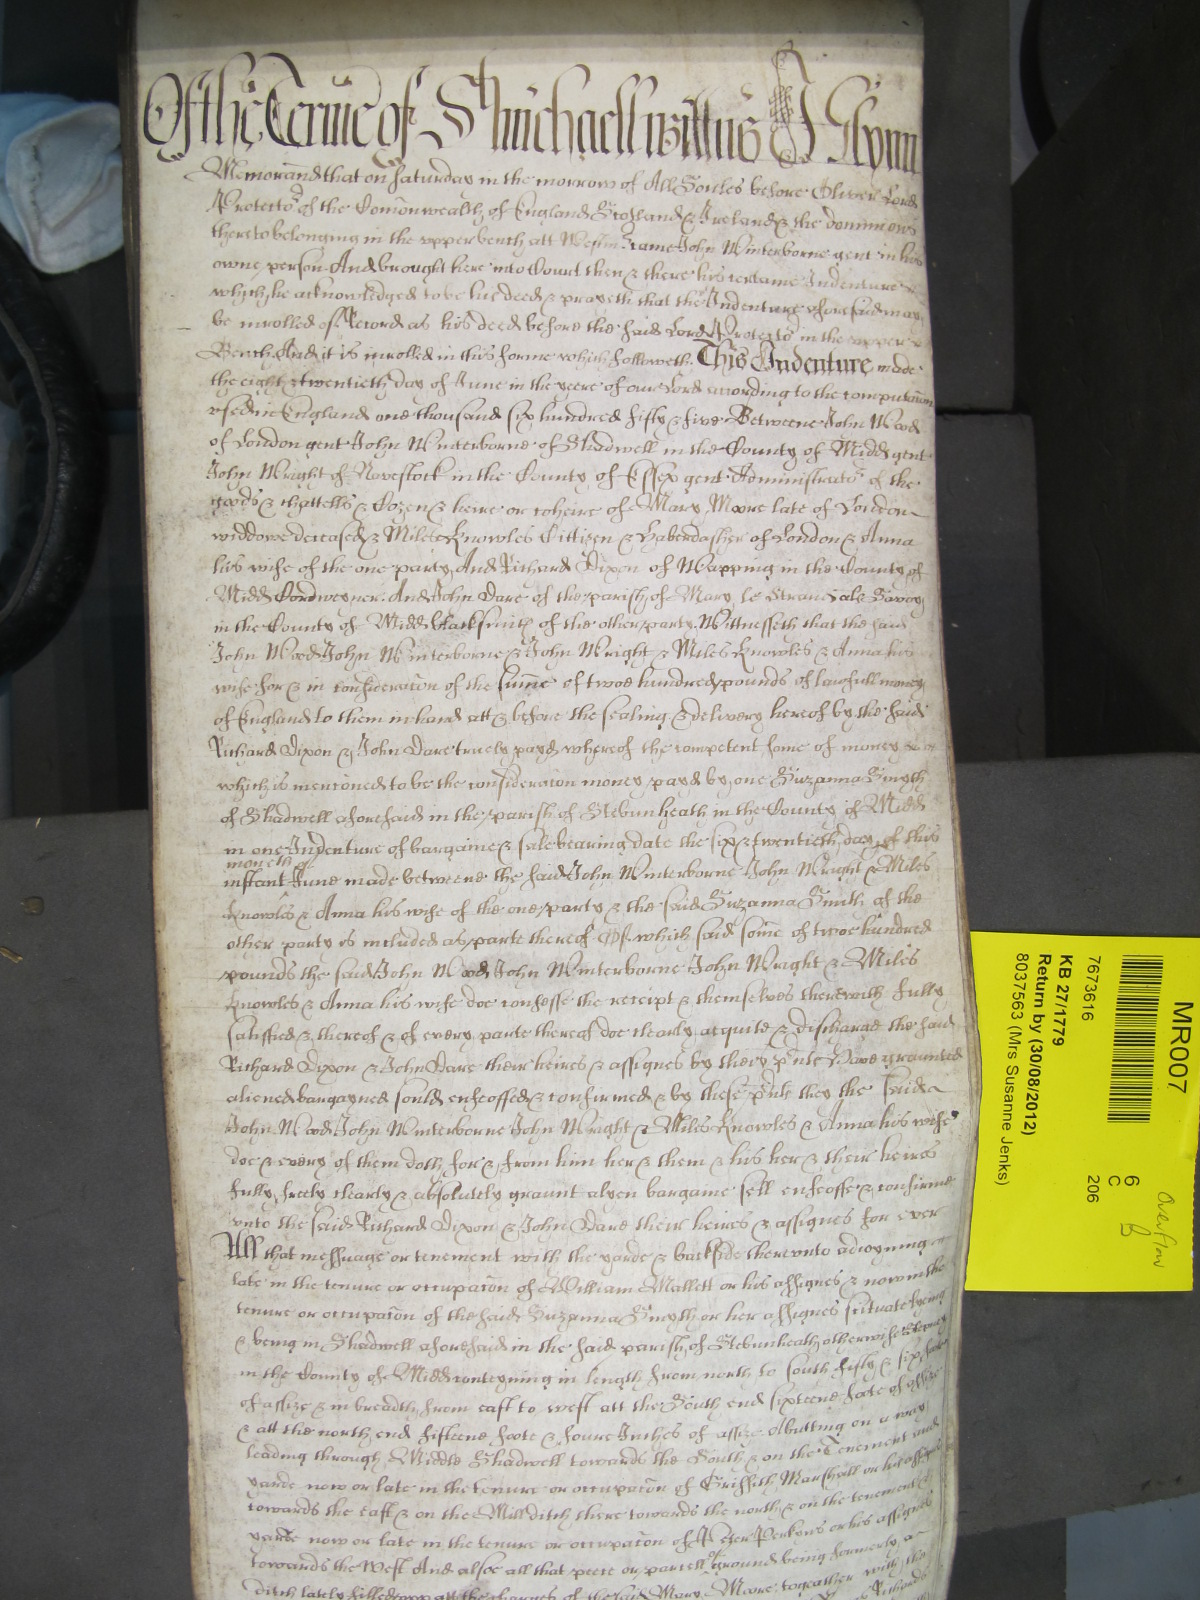 Of the Terme of St Michaell
Memorand that on Saturday in the morrow of All Soules before Oliver Lord
Protector of the Comonwealth of England Scotland & Ireland & the dominions
thereto belonging in the upper bench att Westm came John Winterborne gent in his
owne person And brought here into Court then & there his certaine Indenture
which he acknowledged to be his deed & prayeth that the Indenture aforesaid may
be inrolled of Record as his deed before the said Lord Protector in the upper
Bench And it is inrolled in this forme which followeth. This Indenture made
the eight & twentieth day of June in the yeere of our Lord according to the computacon
used in England one thousand six hundred fifty & five Betweene John Wood
of London gent John Winterborne of Shadwell in the County of Midd gent
John Wright of Navestock in the County of Essex gent Administrator of the
goods & chattells & Cozen & heire or coheire of Mary Moore late of London
widdowe deceased & Miles Knowles Cittizen & Haberdasher of London & Anna
his wife of the one party And Richard Dixon of Wapping in the County of
Midd Cordweyner And John Dare of the parish of Mary le Strand als Savoy
in the County of Midd blacksmith of the other party. Wittnesseth that the said
John Wood John Winterborne & John Wright & Miles Knowles & Anna his
wife for & in consideracon of the sume of twoe hundred pounds of lawfull money
of England to them in hand att & before the sealing & delivery hereof by the said
Richard Dixon & John Dare truely payd whereof the competent some of money
which is mentioned to be the consideracon money payd by one Suzanna Smyth
of Shadwell aforesaid in the parish of Stebunheath in the County of Midd
in one Indenture of bargaine & sale bearing date the six & twentieth day of this
moneth of
instant June made betweene the said John Winterborne John Wright & Miles
Knowles & Anna his wife of the one party & the said Suzanna Smith of the
other party is included as parte thereof Of which said some of twoe hundred
pounds the said John Wood John Winterborne John Wright & Miles
Knowles & Anna his wife doe confesse the receipt & themselves therewith fully
satisfied & thereof & of every parte thereof doe clearly acquite & discharge the said
Richard Dixon & John Dare their heires & assignes by theis pnts Have graunted
aliened bargayned sould enfeoffed & confirmed & by these pnts they the said
John Wood John Winterborne John Wright & Miles Knowles & Anna his wife
doe & every of them doth for & from him her & them & his her & their heires
fully freely clearly & absolutely graunt alyen bargaine sell enfeoffe & confirme
unto the said Richard Dixon & John Dare their heires & assignes for ever
All that messuage or tenement with the yarde & backside thereunto adioyning
late in the tenure or occupacon of William Mallett or his assignes & now in the
tenure or occupacon of the said Suzanna Smyth or her assignes scituate lyeing
& being in Shadwell aforesaid in the said parish of Stebunheath otherwise Stepney
in the County of Midd conteyning in length from north to south fifty & six foote
of assize & in breadth from east to west att the South end sixteene foote of assize
& att the north end fifteene foote & foure Inches of assize Abutting on a way
leading through Middle Shadwell towards the South & on the Tenement and
yarde now or late in the tenure or occupacon of Griffith Marshall or his assignes
towards the east & on the Mill ditch there towards the north & on the tenement &
yarde now or late in the tenure or occupacon of Peter Perkens or his assignes
towards the West And alsoe all that peece or parcell of ground being formerly a
ditch lately filled upp att the charges of the said Mary Moore togeather with the
MR007
7673616
KB 27/1779
Return by (30/08/2012)
8037563 (Mrs Susanne Jenks)
6
C
206
Overflow